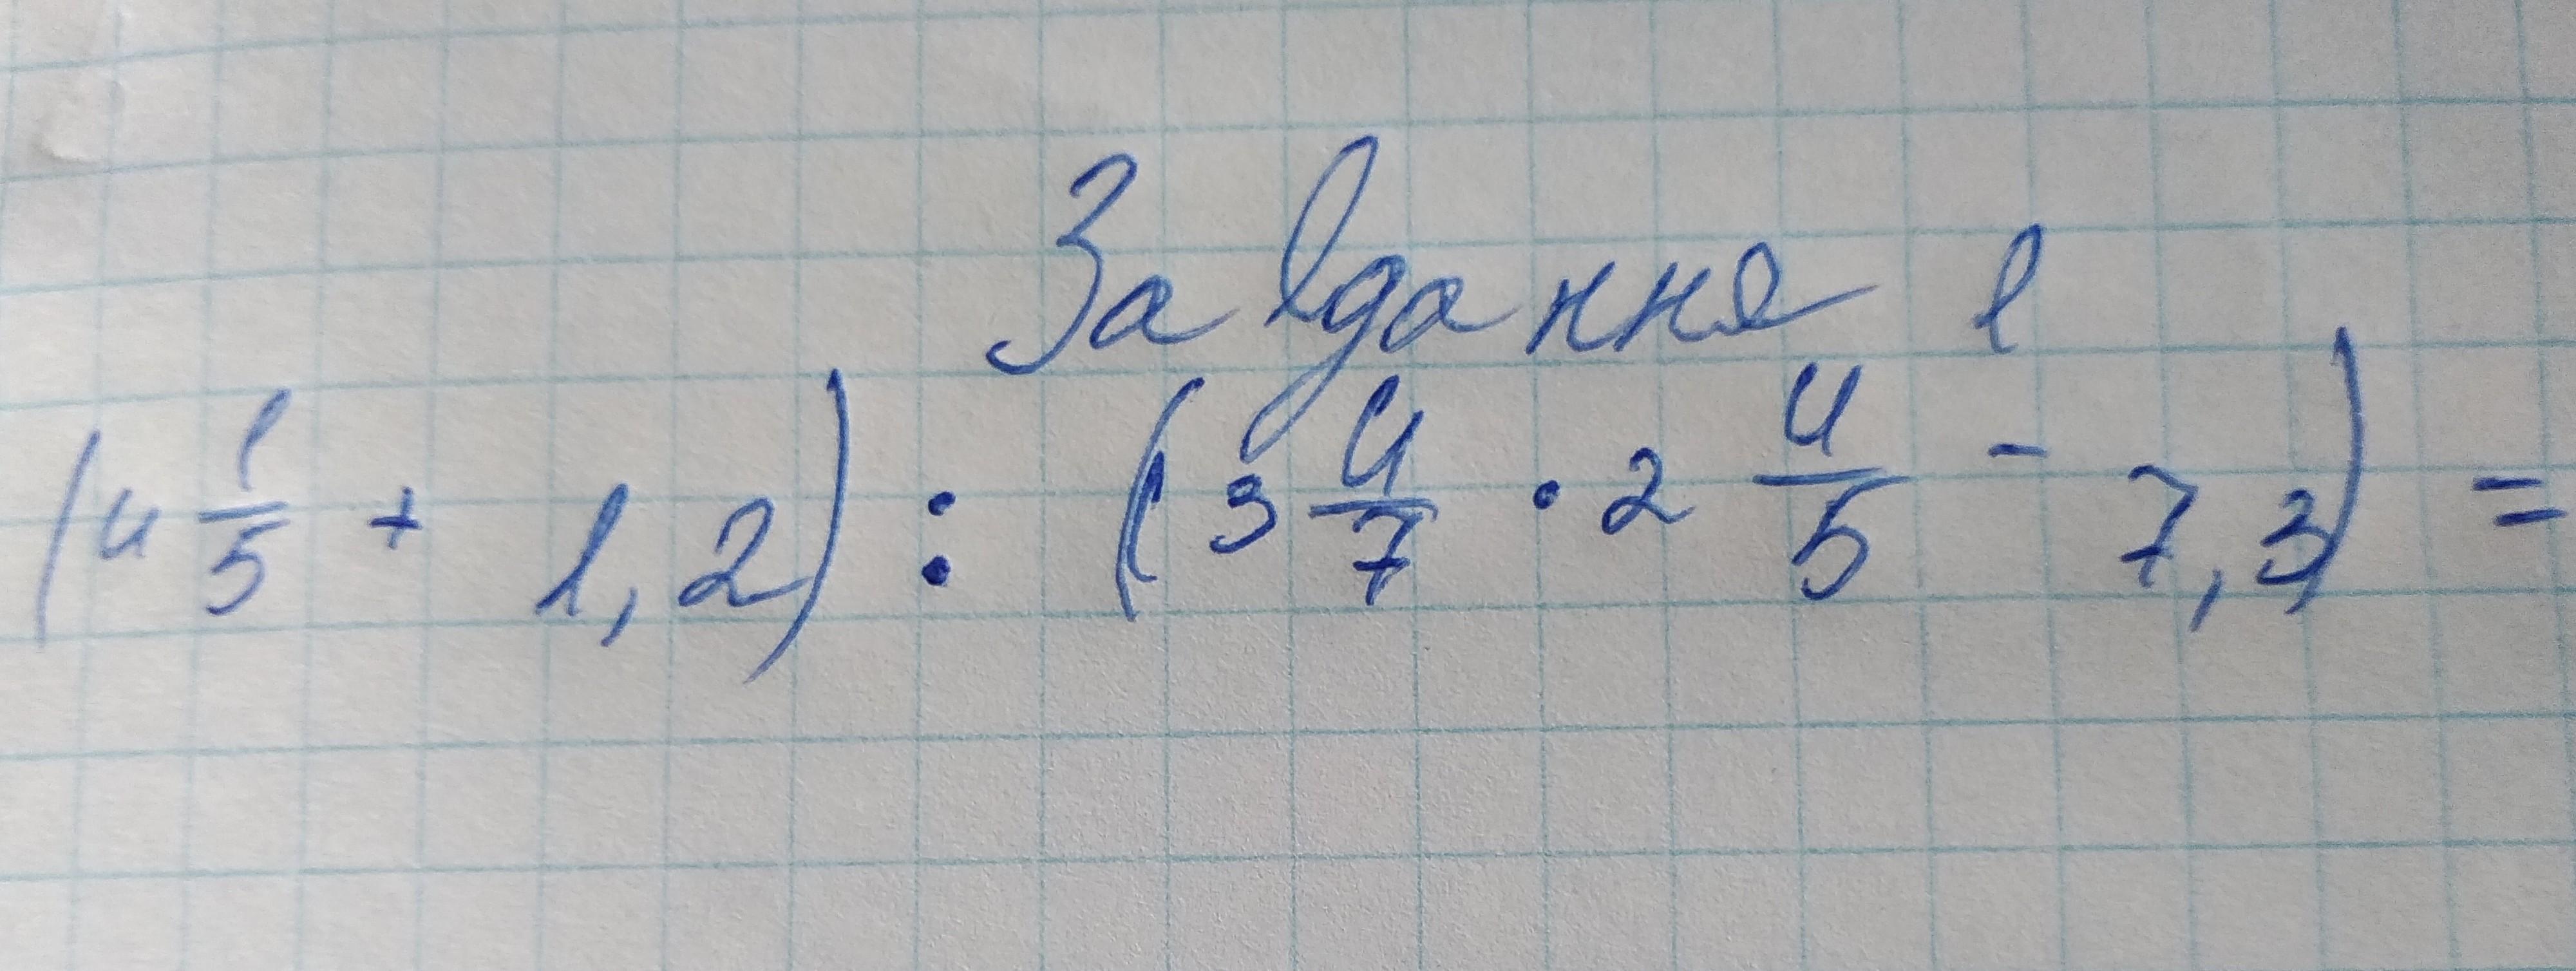 Завдання 1
(4 1/5 + 1,2) : (3 4/7 · 2 4/5 - 7,3) =